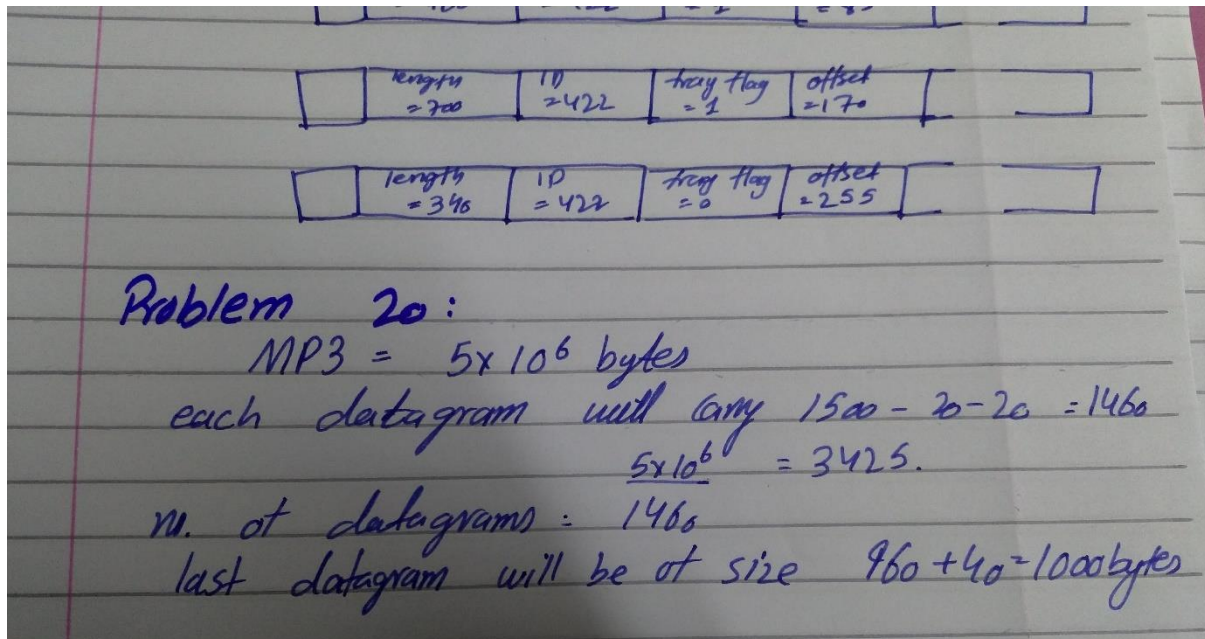 length =700 ID =422 frag flag =1 offset =170
length =346 ID =422 frag flag =0 offset =255
Problem 20:
MP3 = 5x10⁶ bytes
each datagram will carry 1500 - 20-20 = 1460
5x10⁶ = 3425.
no. of datagrams = 1460
last datagram will be of size 960+40=1000bytes